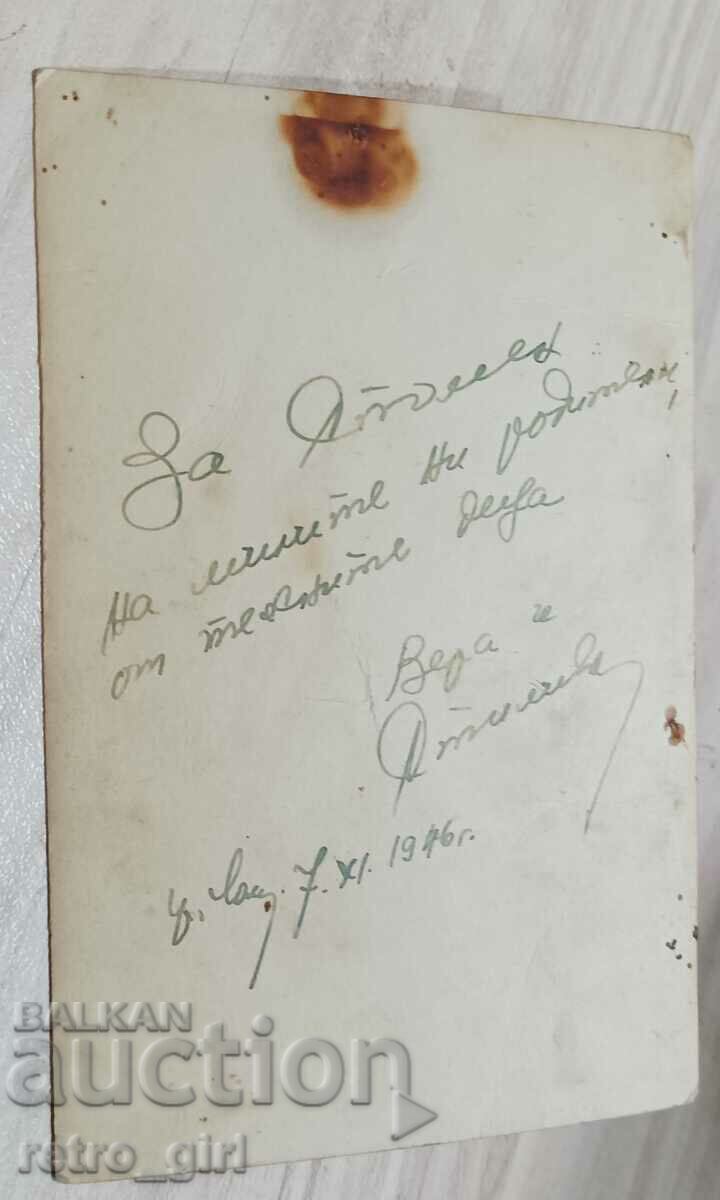 За спомен
на милите ни родители,
от техните деца
Вера и
7.XI.1946г.
BALKAN
auction
retro_girl